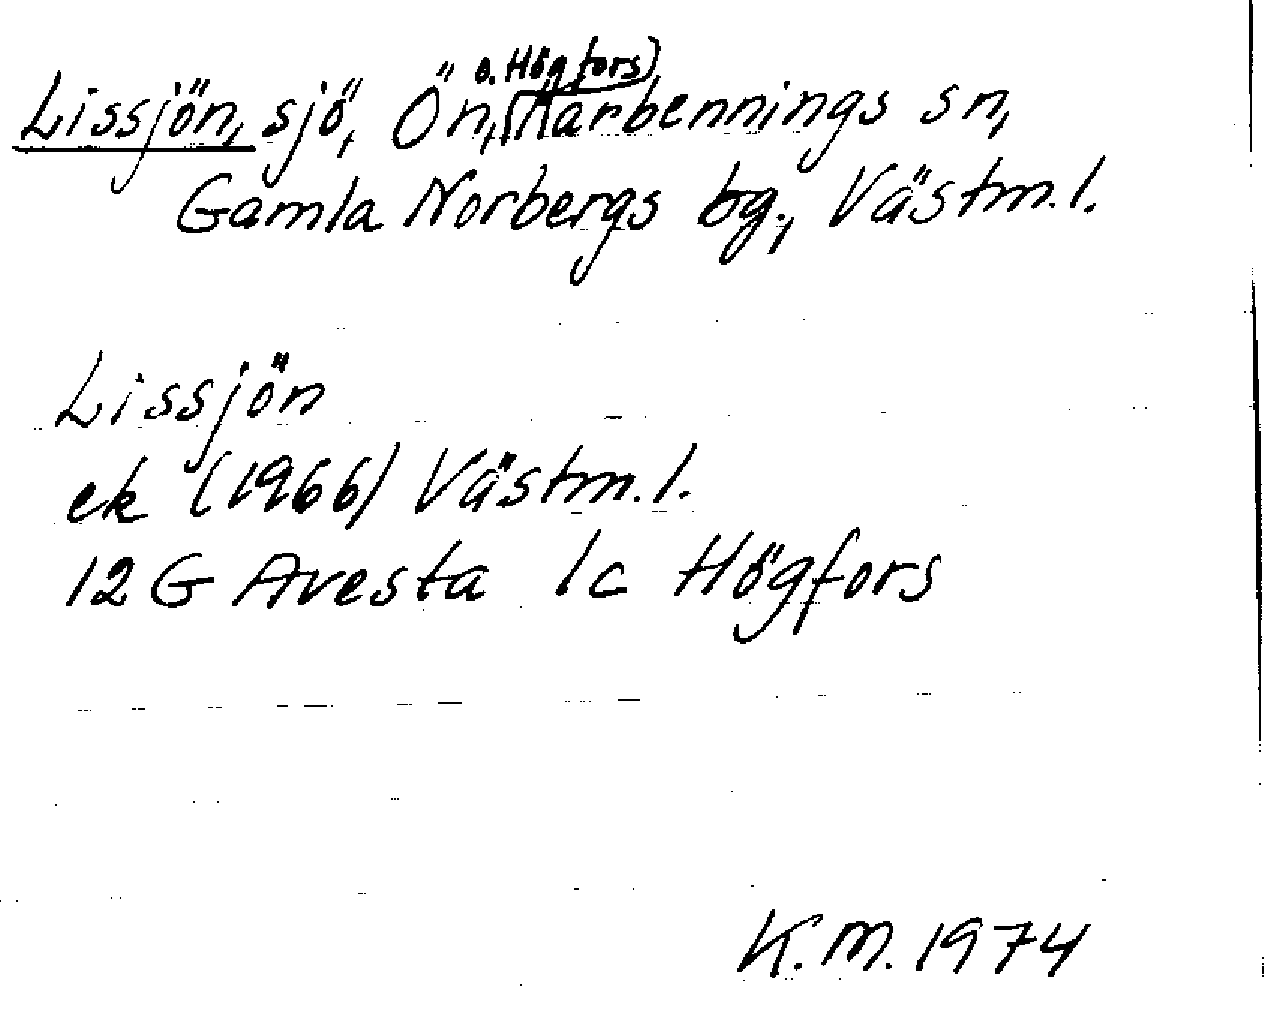 Lissjön, sjö, Ön, o. Högfors) Karbennings sn,
Gamla Norbergs bg., Västm.l.
Lissjön
ek (1966) Västm.l.
12G Avesta 1c Högfors
K.M. 1974